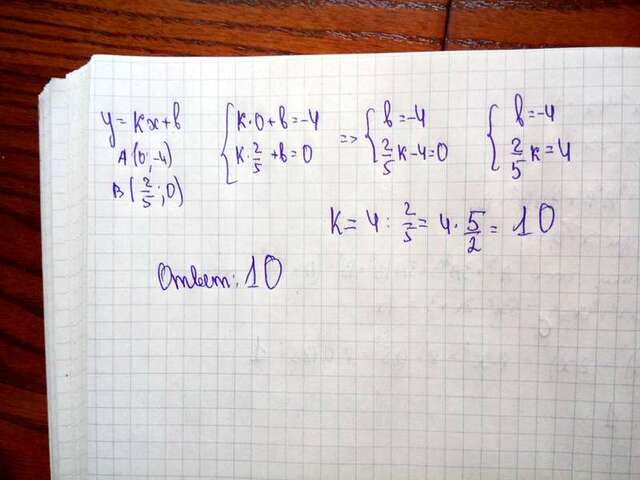 y = kx + b
A (0; -4)
B (2/5; 0)
{ k·0 + b = -4
{ k·2/5 + b = 0
=> { b = -4
{ 2/5 k - 4 = 0
{ b = -4
{ 2/5 k = 4
k = 4 : 2/5 = 4 · 5/2 = 10
Ответ: 10